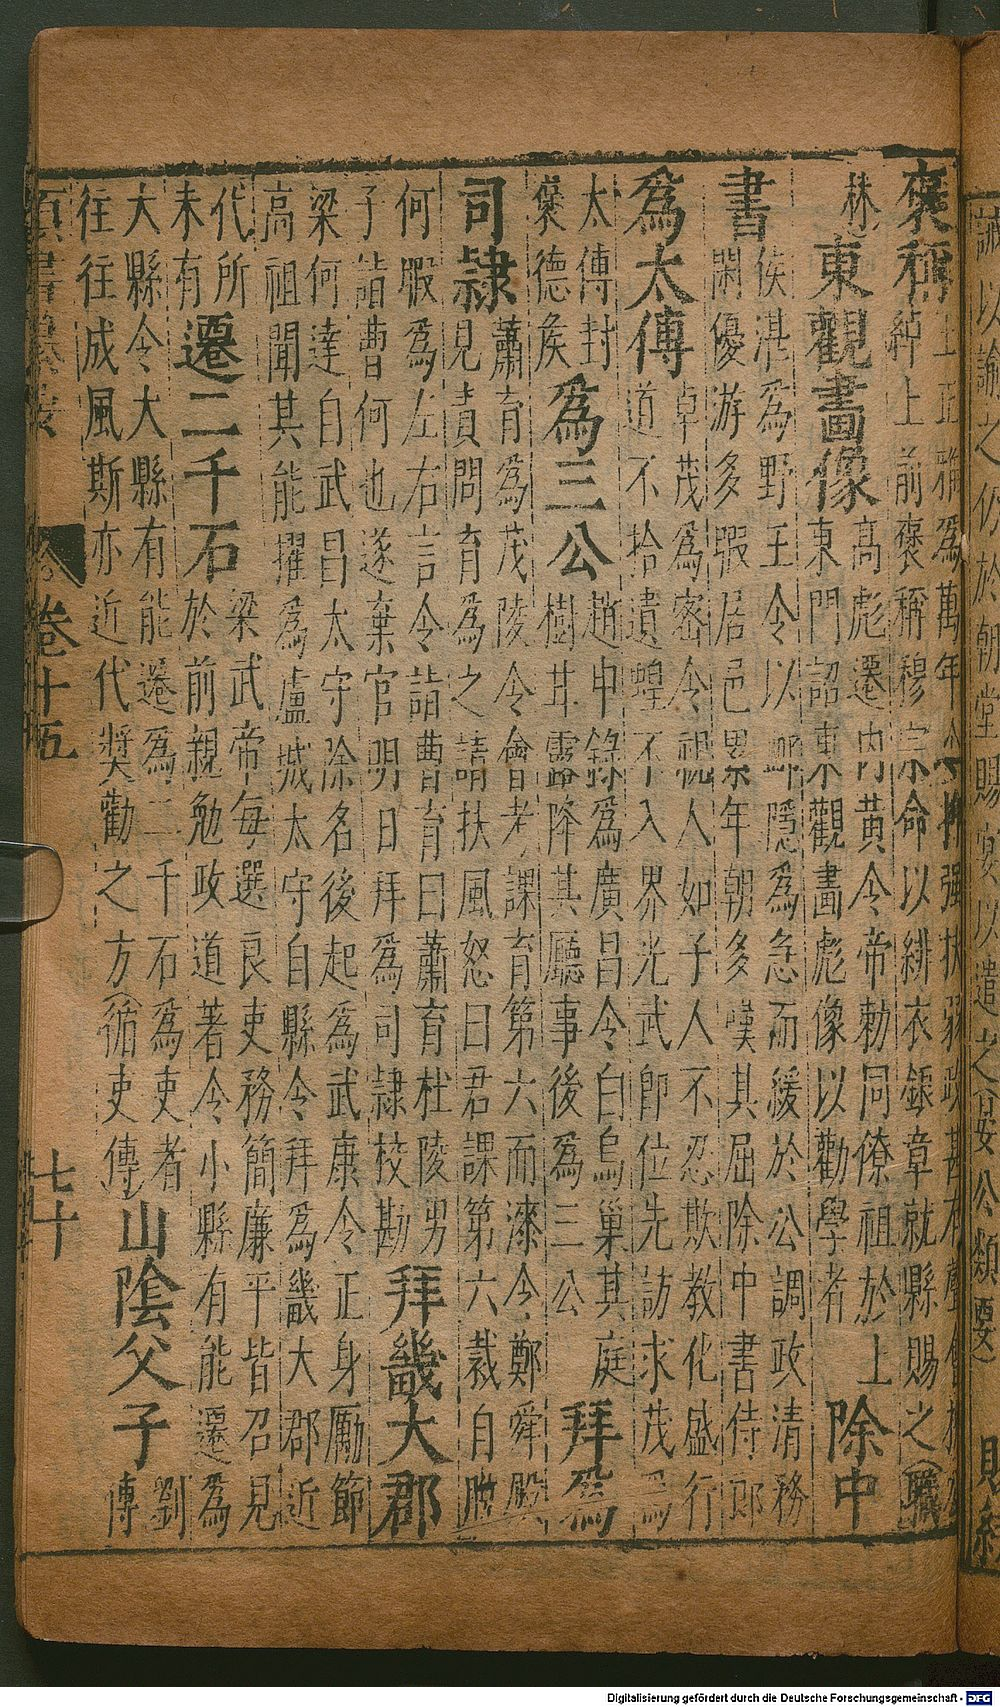 褒稱
綽上前褒稱穆宗命以緋衣銀章就縣賜之(職
林)
東觀畫像
高彪遷內黃令帝勅同僚祖於上
東門詔東觀畫彪像以勸學者
除中
書
侯湛為野王令以䘏隱為急而緩於公調政清務
閑優游多暇居邑累年朝多嘆其屈除中書侍郎
拜為
為太傅
卓茂為密令視人如子人不忍欺教化盛行
道不拾遺蝗不入界光武即位先訪求茂為
太傅封
褒德矦
為三公
趙申錄為廣昌令白烏巢其庭
樹甘露降其廳事後為三公
拜為
司隸
蕭育為茂陵令會考課育第六而漆令鄭舜殿
見責問育為之請扶風怒曰君課第六裁自脫
何暇為左右言令詣曹育曰蕭育杜陵男
子詣曹何也遂棄官明日拜為司隸校勘
拜畿大郡
梁何達自武昌太守除名後起為武康令正身勵節
高祖聞其能擢為盧城太守自縣令拜為畿大郡近
代所
未有
遷二千石
梁武帝每選良吏務簡廉平皆召見
於前親勉政道著令小縣有能遷為
大縣令大縣有能遷為二千石為吏者
往往成風斯亦近代奬勸之方(循吏傳)
山陰父子
劉
傳
卷十五
七十
Digitalisierung gefördert durch die Deutsche Forschungsgemeinschaft - DFG